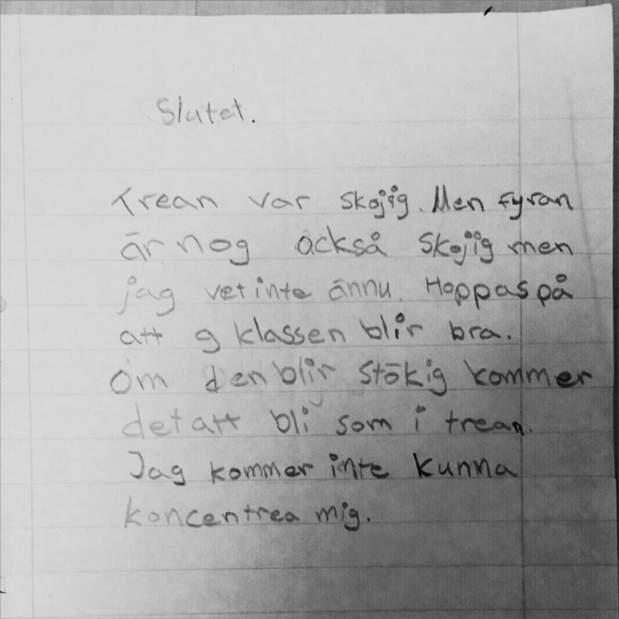 Slutet.
Trean var skojig. Men fyran
är nog också skojig men
jag vet inte ännu. Hoppas på
att 9 klassen blir bra.
om den blir stökig kommer
det att bli som i trean.
Jag kommer inte kunna
koncentrea mig.